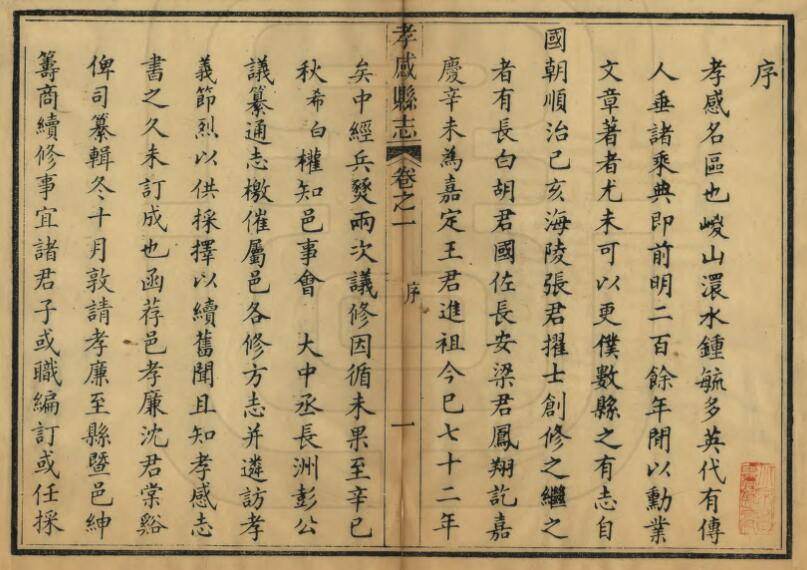 序
孝感名區也崚山澴水鍾毓多英代有傳
人垂諸乘典即前明二百餘年閒以勳業
文章著者尤未可以更僕數縣之有志自
國朝順治己亥海陵張君擢士創修之繼之
者有長白胡君國佐長安梁君鳳翔訖嘉
慶辛未為嘉定王君進祖今已七十二年
孝感縣志 卷之一 序 一
矣中經兵燹兩次議修因循未果至辛巳
秋希白權知邑事會 大中丞長洲彭公
議纂通志檄催屬邑各修方志并遴訪孝
義節烈以供採擇以續舊聞且知孝感志
書之久未訂成也函荐邑孝廉沈君棠谿
俾司纂輯冬十月敦請孝廉至縣暨邑紳
籌商續修事宜諸君子或職編訂或任採